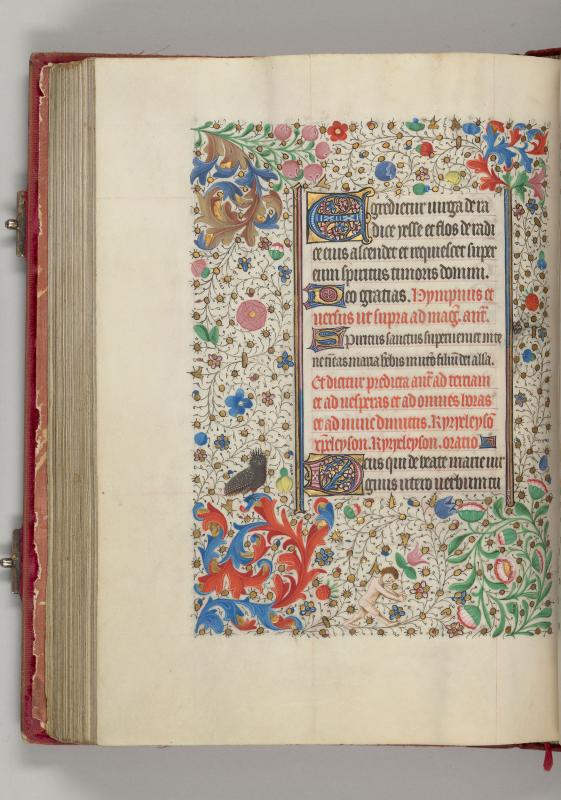 Egredietur uirga de ra
dice yesse et flos de radi
ce eius ascendet et requiescet super
eum spiritus timoris domini.
Deo gratias. Hympnus et
uersus ut supra ad mag̃. añt.
Spiritus sanctus superueniet in te
ne timeas maria
Et dicitur predicta añt ad terciam
et ad uesperas et ad omnes horas
et ad nunc dimittis. Kyryeleyso
xp̃eleyson. Kyryeleyson. oratio
Deus qui de beate marie uir
ginis utero uerbum tu